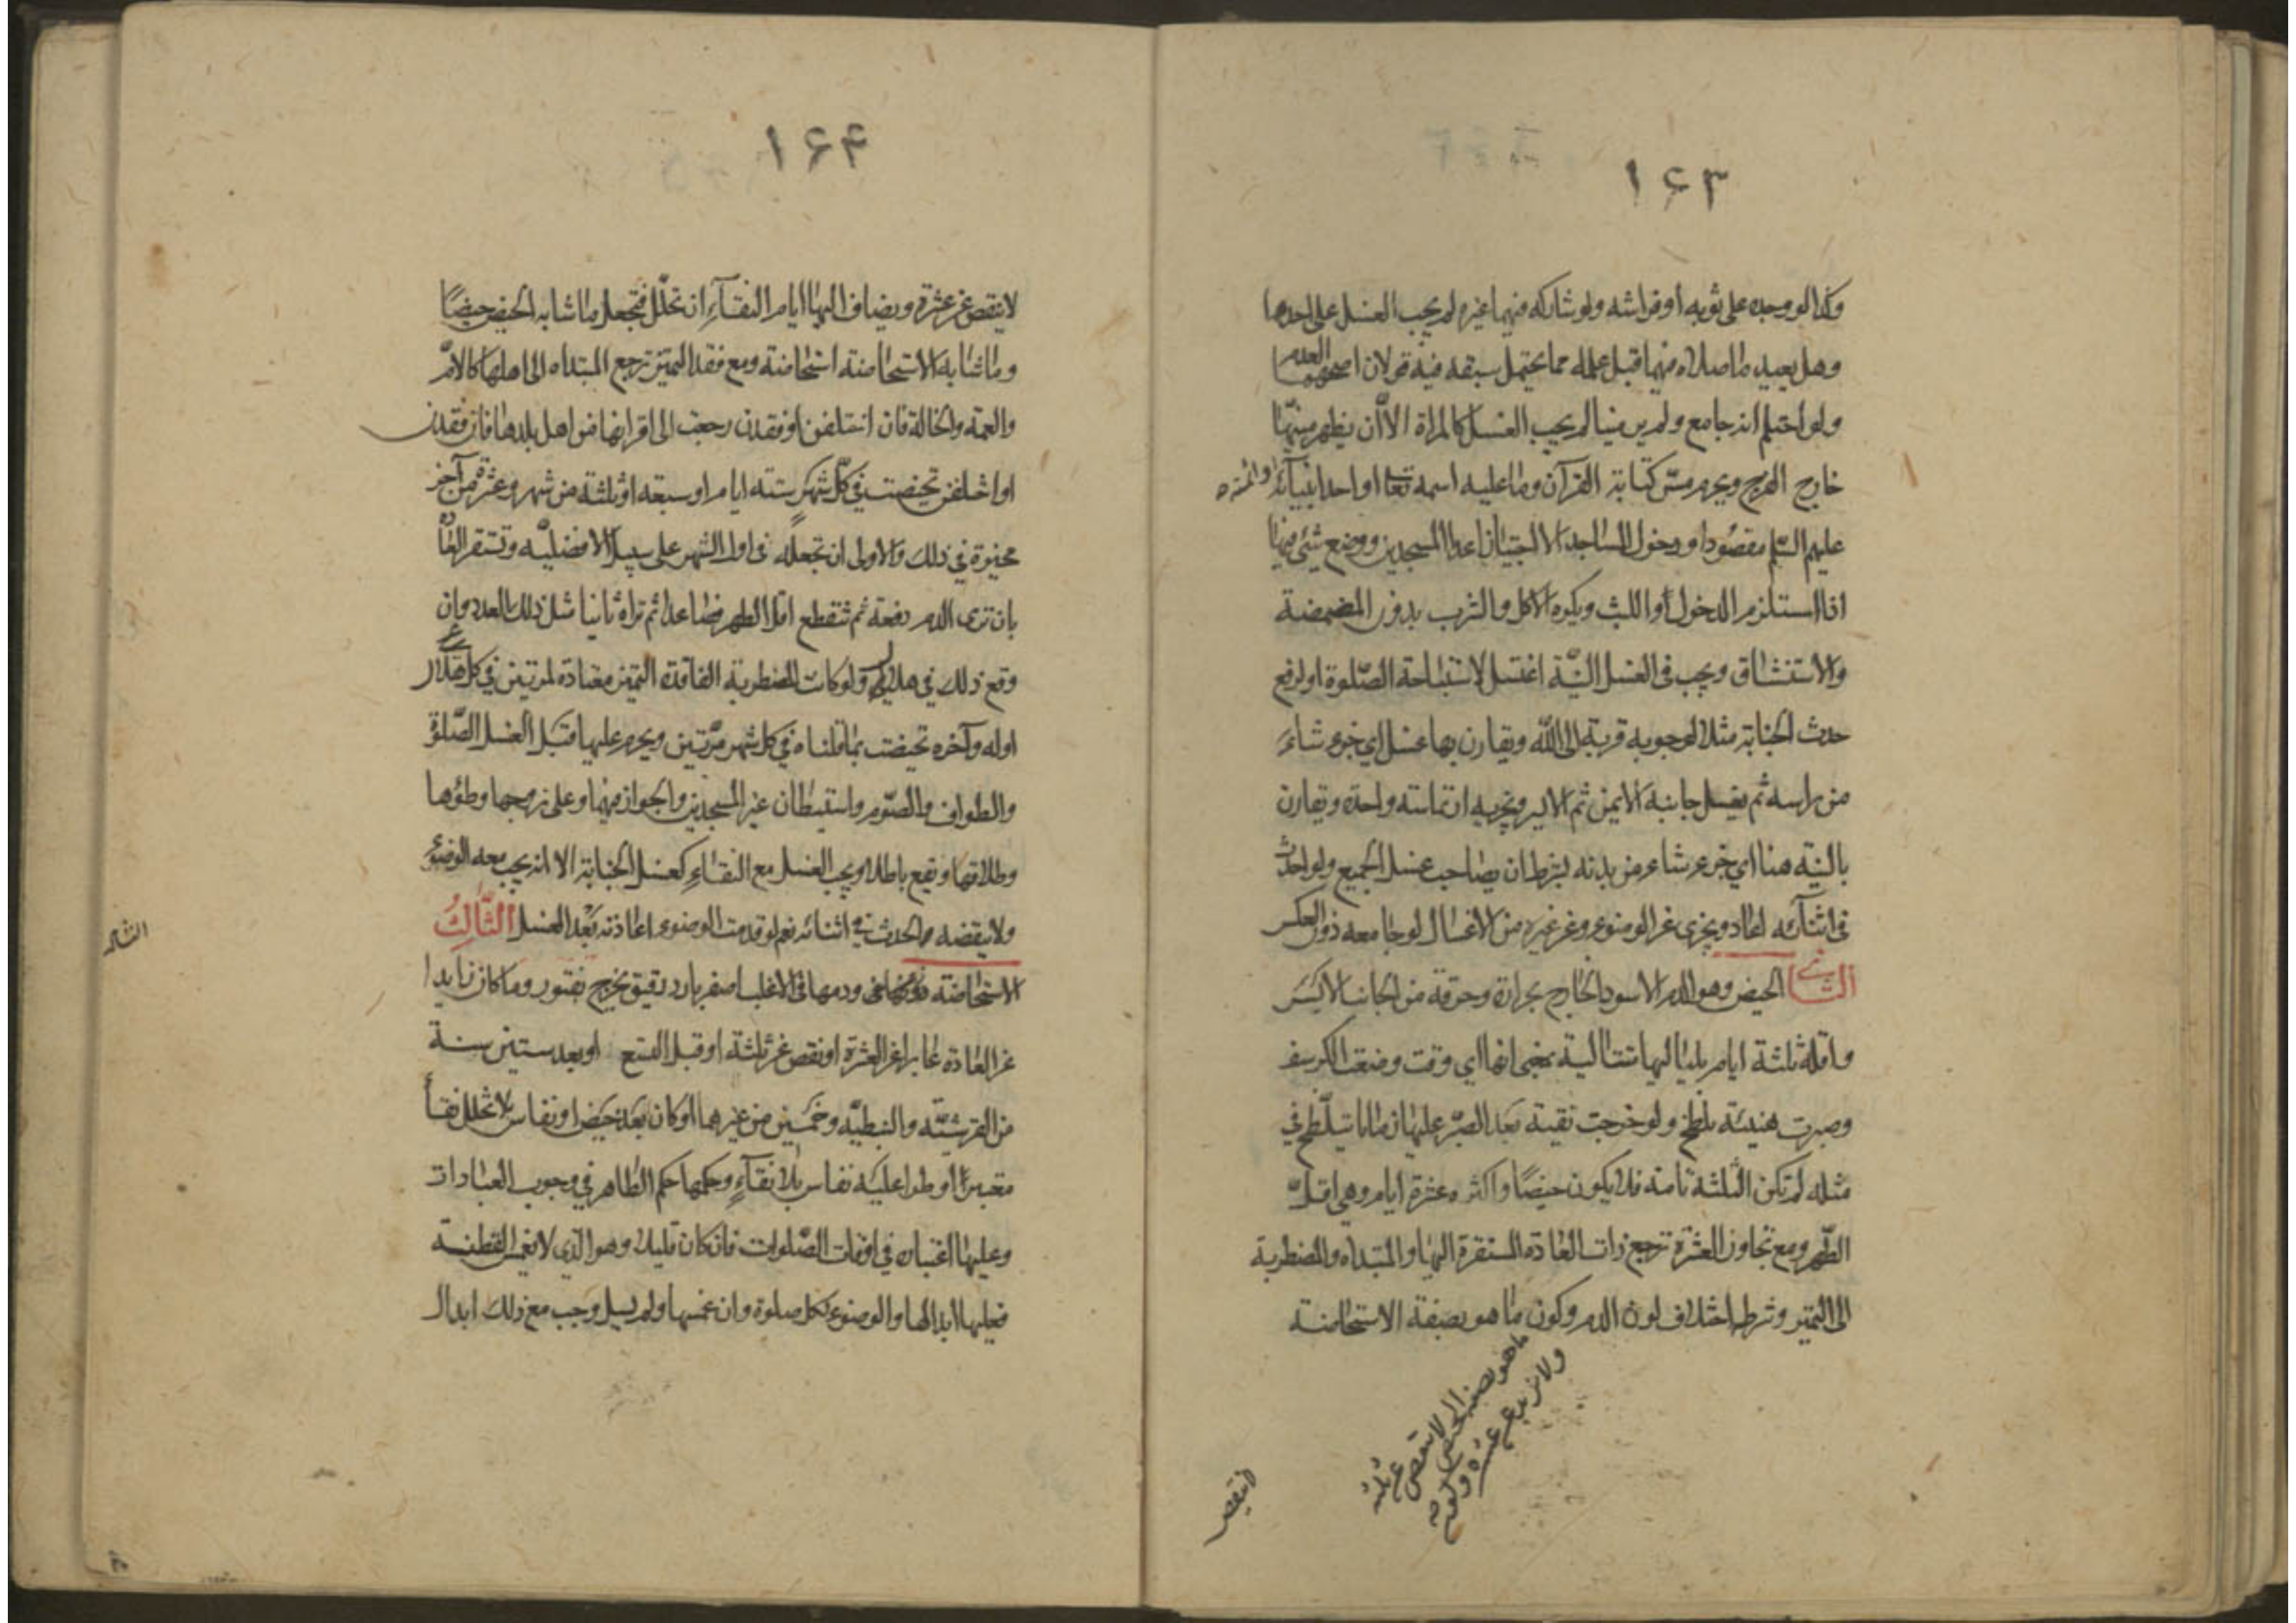 ١٦٣
وكذا لو وجده على ثوبه او فراشه ولو شاركه فيهما غيره لم يجب الغسل على احدهما
وهل يعيد ما صلاه فيهما قبل علمه مما يحتمل سبقه فيه قولان اصحهما العدم
ولو احتلم انه جامع ولم ير منيا لم يجب الغسل كالمراة الا ان يظهر منيها
خارج الفرج ويحرم مس كتابة القرآن وما عليه اسمه تعا او احد انبيائه او ائمته
عليهم السلم مقصودا ودخول المساجد الا اجتيازا عدا المسجدين ووضع شئ فيها
اذا استلزم الدخول او اللبث ويكره الاكل والشرب بدون المضمضة
والاستنشاق ويجب فى الغسل النيّة اغتسل لاستباحة الصّلوة او لرفع
حدث الجنابة مثلا لوجوبه قربة الى الله ويقارن بها غسل اي جزء شاء
من راسه ثم يغسل جانبه الايمن ثم الايسر ويجزيه ارتماسه واحدة ويقارن
بالنيّه هنا اي جزء شاء من بدنه بشرط ان يصاحب غسل الجميع ولو احدث
فى اثنائه اعاد ويجزى عن الوضوء وعن غيره من الاغسال لو جامعه دون العكس
الثاني الحيض وهو الدم الاسود الخارج بحرارة وحرقة من الجانب الايسر
واقله ثلثة ايام بلياليها متتالية بمعنى انها اي وقت وضعت الكرسف
وصبرت هنيئة تلطخ ولو خرجت نقية بعد الصبر عليها زمانا يتلطخ في
مثله لم تكن الثلثة تامة فلا يكون حيضًا واكثره عشرة ايام وهي اقل
الطّهر ومع تجاوز العشرة ترجع ذات العادة المستقرة اليها والمبتداه والمضطربة
الى التميز وشرطه اختلاف لون الدم وكون ما هو بصفة الاستحاضة
ما هو بصفة الحيض لا ينقص عن ثلثة
ولا يزيد عن عشرة وكون
لا ينقص
١٦٤
لا ينقص عن عشرة ويضاف اليها ايام النقاء ان تخلّل فتجعل ما شابه الحيض حيضًا
وما شابه الاستحاضة استحاضة ومع فقد التميز ترجع المبتداه الى اهلها كالامّ
والعمة والخالة فان اختلفن او فقدن رجعت الى اقرانها من اهل بلدها فان فقدن
او اختلفن تحيضت في كلّ شهر ستة ايام او سبعة او ثلثة من شهر وعشرة من آخر
مخيرة في ذلك والاولى ان تجعله فى اول الشهر على سبيل الافضليّه وتستقر العادة
بان ترى الدم دفعة ثم تنقطع اقل الطهر فصاعدا ثم تراه ثانيا مثل ذلك العدد وان
وقع ذلك في هلال ولو كانت المضطربة الفاقدة التميز معتادة لمرتين في كل هلال
اوله وآخره تحيضت بما قلناه في كل شهر مرّتين ويحرم عليها قبل الغسل الصّلوة
والطواف والصّوم واستيطان غير المسجدين والجواز فيهما وعلى زوجها وطؤها
وطلاقها ويقع باطلا ويجب الغسل مع النقاء كغسل الجنابة الا انه يجب معه الوضوء
ولا ينقضه الحدث في اثنائه نعم لو قدمت الوضوء اعادته بَعْد الغسل الثَّالِثُ
الاستحاضة ودمها فى الاغلب اصفر بارد رقيق يخرج بفتور وما كان زايدا
عن العادة عابرا عن العشرة او نقص عن ثلثة او قبل التسع او بعد ستين سنة
من القرشيّة والنبطيّه وخمسين من غيرهما او كان بعد حيض او نفاس بلا تخلل نقاء
معتبر او طرا عليه نفاس بلا نقاءٍ وحكمها حكم الطاهر في وجوب العبادات
وعليها اعتباره في اوقات الصّلوات فان كان قليلا وهو الذي لا يغمس القطنة
فعليها ابدالها والوضوء لكل صلوة وان غمسها ولم يسل وجب مع ذلك ابدال
الثالث